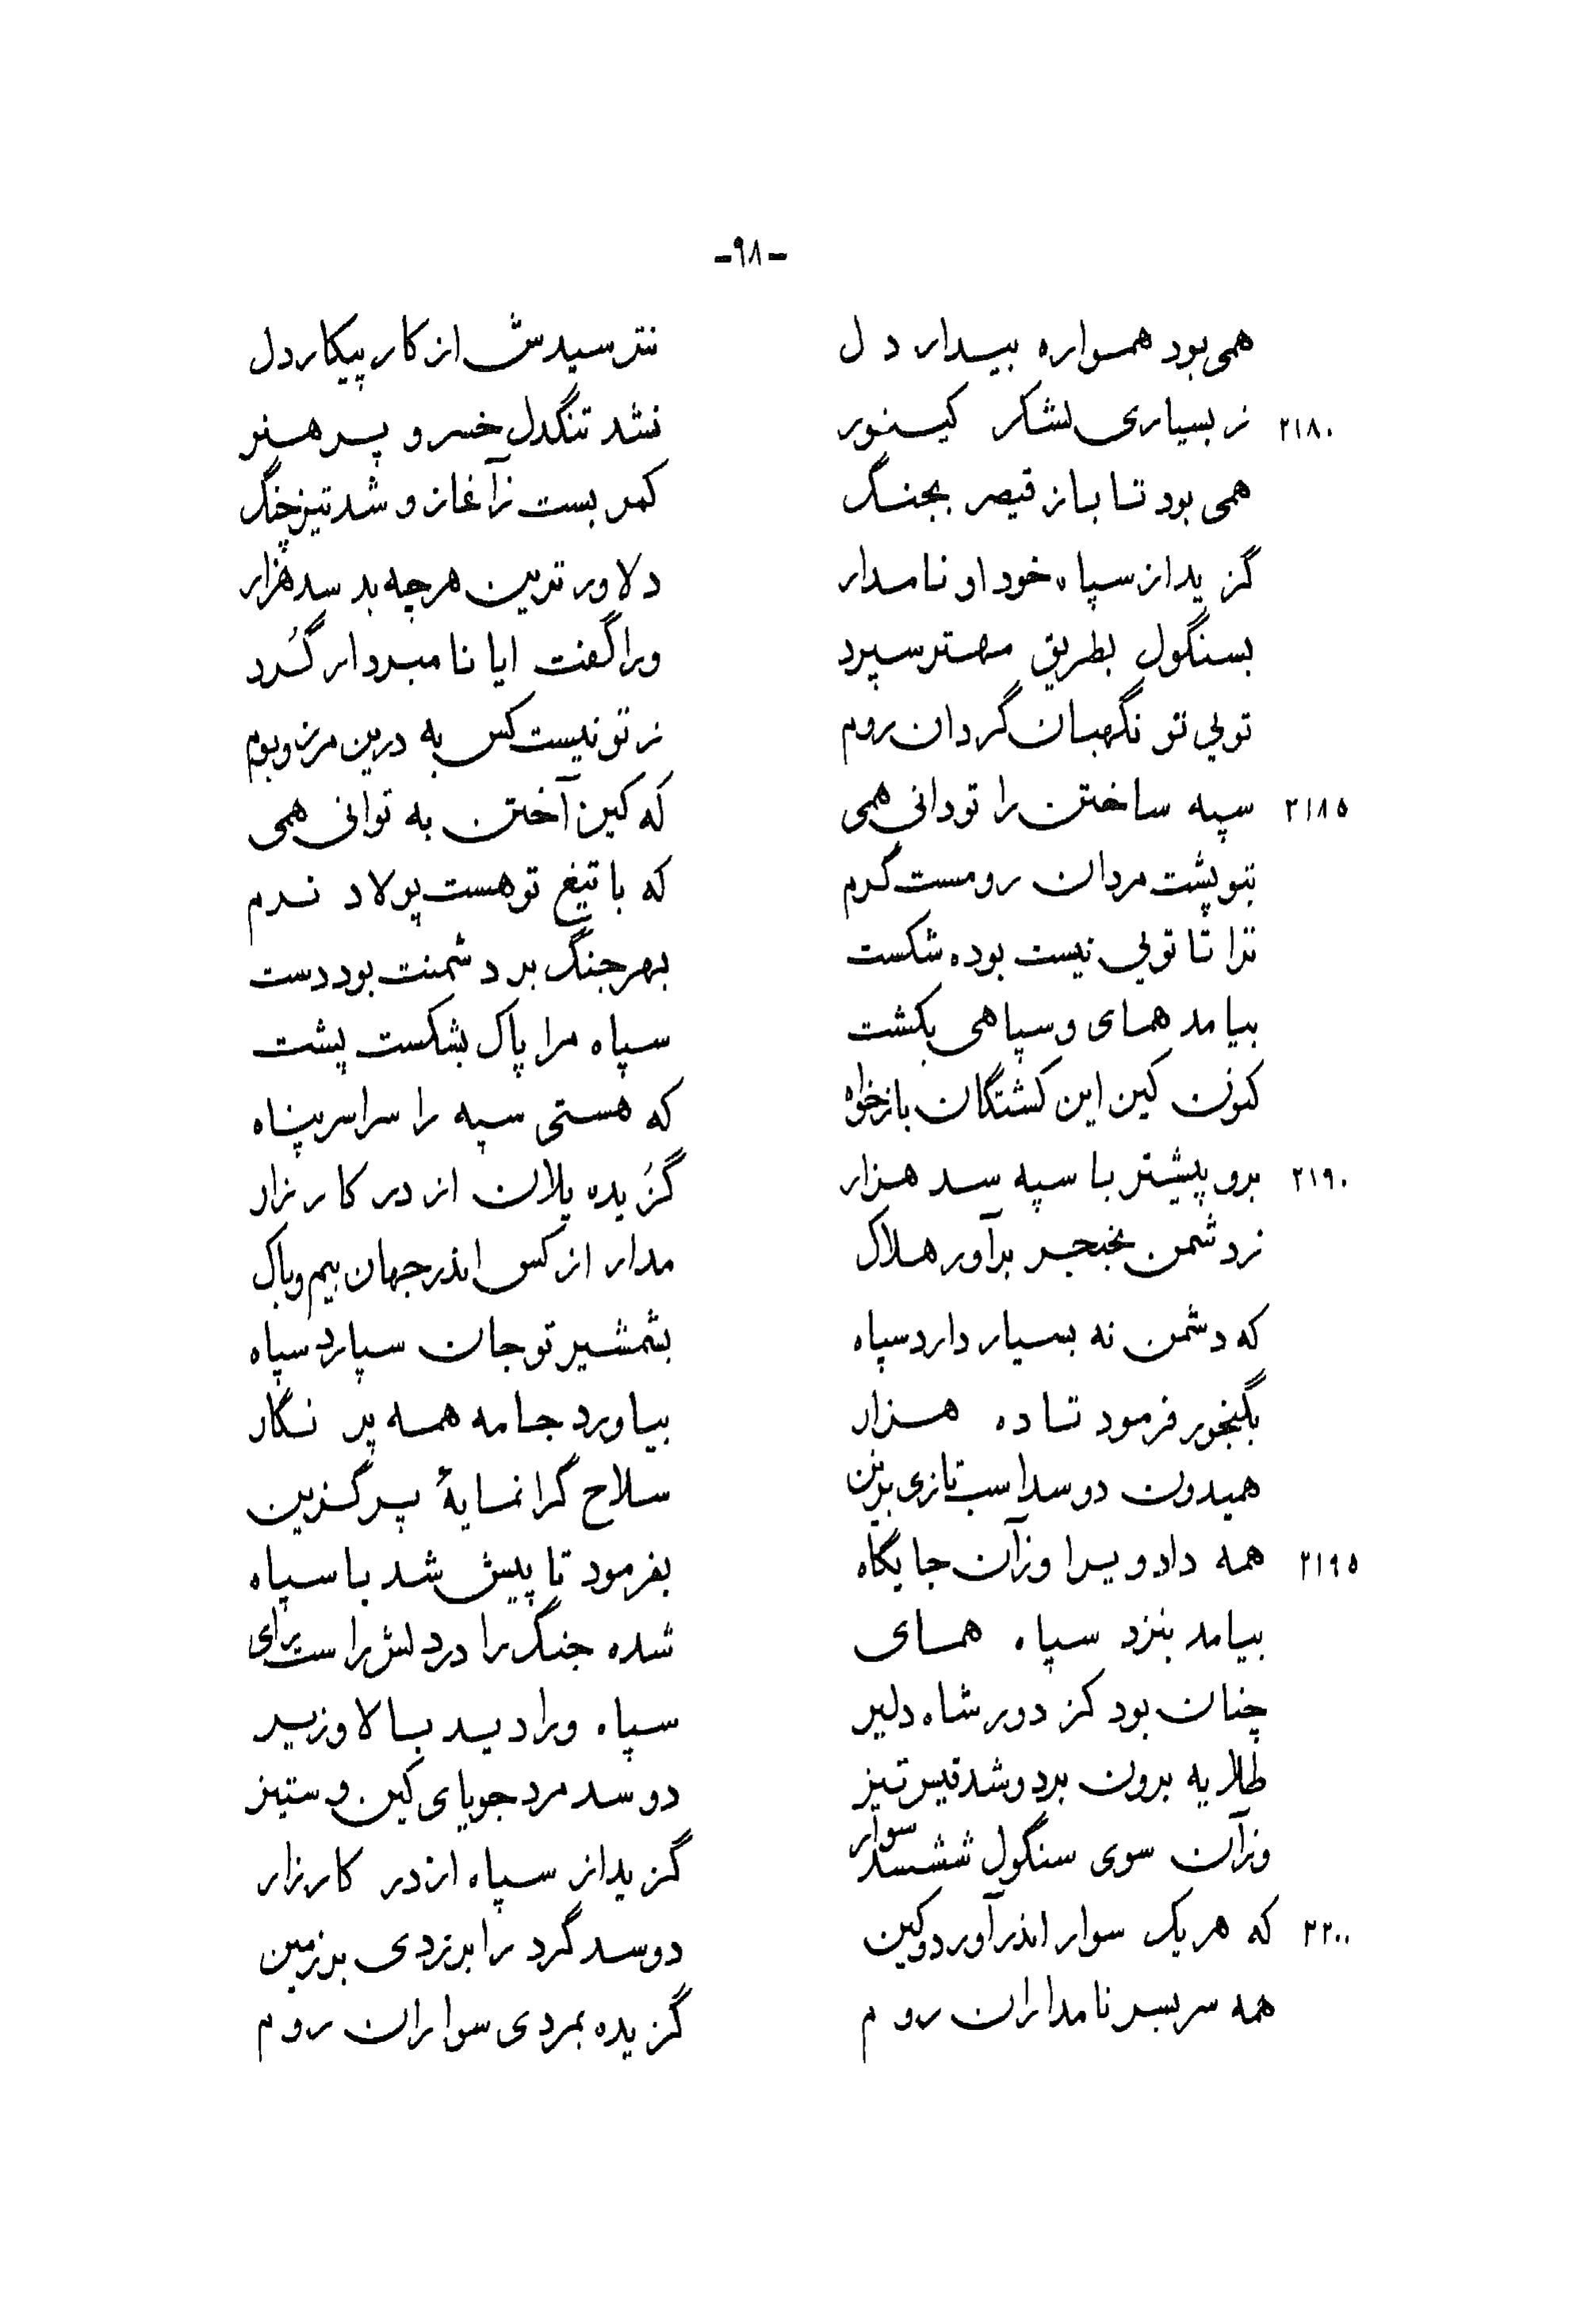 -۹۸-
همی بود همواره بیدار دل نترسیدش از کار پیکار دل
۲۱۸۰ ز بسیاری لشکر کینور نشد تنگدل خسرو پر هنر
همی بود تا باز قیصر بجنگ کمر بست زآغاز و شد تیز چنگ
گزید از سپاه خود او نامدار دلاور ترین هرچه بد سد هزار
بسنگول بطریق مهتر سپرد ورا گفت ایا نامبردار گُرد
تویی تو نگهبان گردان روم ز تو نیست کس به درین مرز و بوم
۲۱۸۵ سپه ساختن را تو دانی همی که کین آختن به توانی همی
بتو پشت مردان رومست گرم که با تیغ تو هست پولاد نرم
ترا تا تویی نیست بوده شکست بهر جنگ بر دشمنت بود دست
بیامد همای و سپاهی بکشت سپاه مرا پاک بشکست پشت
کنون کین این کشتگان بازخواه که هستی سپه را سراسر پناه
۲۱۹۰ برو پیشتر با سپه سد هزار گُزیده یلان از در کار زار
ز دشمن بخنجر برآور هلاک مدار از کس اندر جهان بیم و باک
که دشمن نه بسیار دارد سپاه بشمشیر تو جان سپارد سپاه
بگنجور فرمود تا ده هزار بیاورد جامه همه پر نگار
همیدون دو سد اسب تازی بزین سلاح گرانمایهٔ پر گزین
۲۱۹۵ همه داد ویرا وزآن جایگاه بفرمود تا پیش شد با سپاه
بیامد بنزد سپاه همای شده جنگ را در دلش راست رای
چنان بود کز دور شاه دلیر سپاه ورا دید بالا و زیر
طلایه برون برد و شد قیس تیز دو سد مرد جویای کین و ستیز
وزآن سوی سنگول ششسد سوار گزید از سپاه از در کارزار
۲۲۰۰ که هر یک سوار اندر آورد و کین دو سد گرد را بر زدی بر زمین
همه سر بسر نامداران روم گزیده بمردی سواران روم